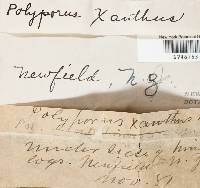 Polyporus Xanthus
New York Botanical
Newfield, N.J.
NEW
BOT
Polyporus xanthus
Under side of
logs. Newfield N.J.
Nov. 81